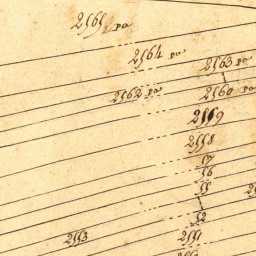 2565 po
2564 po
2563 po
2562 po 2560 po
2559
2558
57
56
55
52
2553 2551